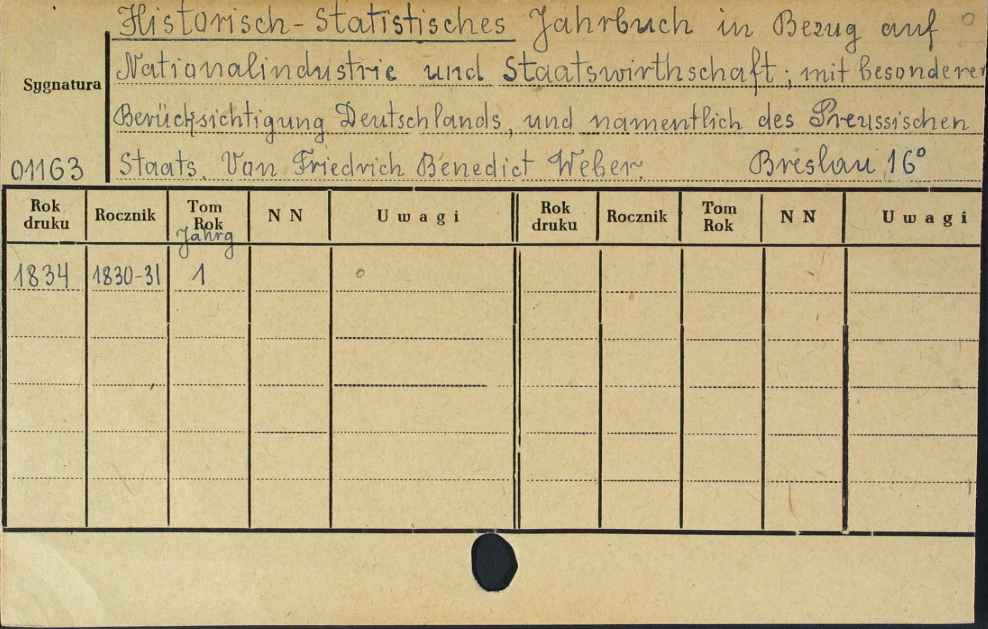 Historisch-Statistisches Jahrbuch in Bezug auf
Nationalindustrie und Staatswirthschaft; mit besonderer
Sygnatura
Berücksichtigung Deutschlands, und namentlich des Preussischen
01163 Staats. Von Friedrich Benedict Weber. Breslau 16°
Rok druku Rocznik Tom Rok N N Uwagi Rok druku Rocznik Tom Rok N N Uwagi
Jahrg
1834 1830-31 1